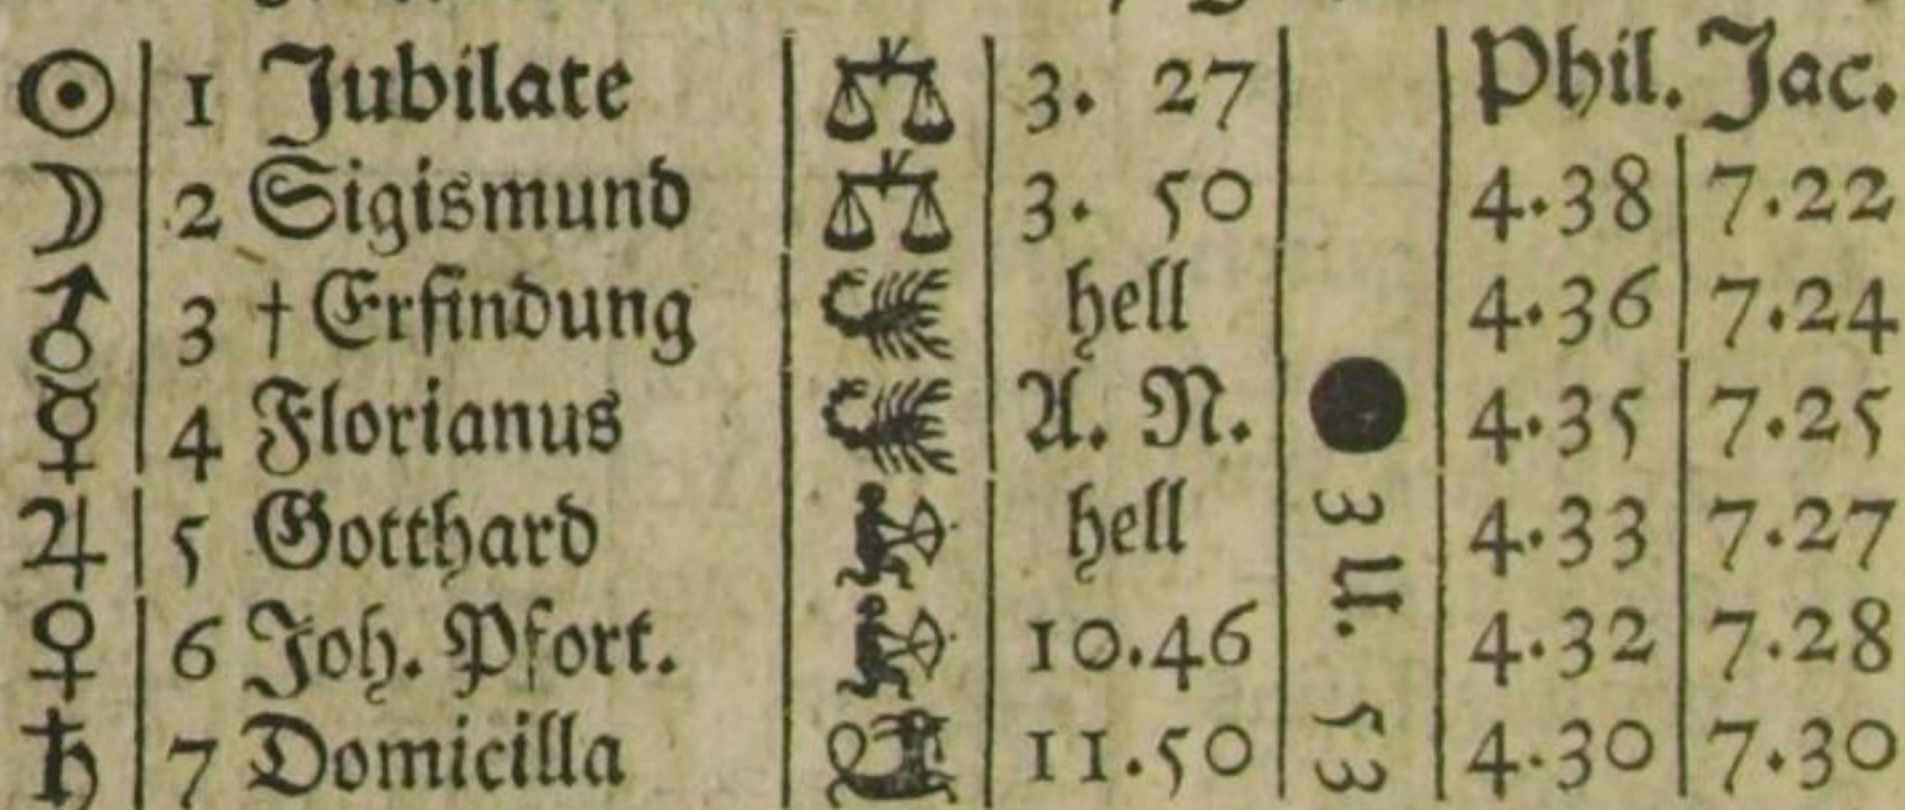 ☉ 1 Jubilate ♎ 3. 27 Phil. Jac.
☽ 2 Sigismund ♎ 3. 50 4.38 7.22
♂ 3 † Erfindung ♏ hell 4.36 7.24
☿ 4 Florianus ♏ A. N. ● 4.35 7.25
♃ 5 Gotthard ♐ hell 4.33 7.27
♀ 6 Joh. Pfort. ♐ 10.46 4.32 7.28
♄ 7 Domicilla ♑ 11.50 4.30 7.30
3 U. 53